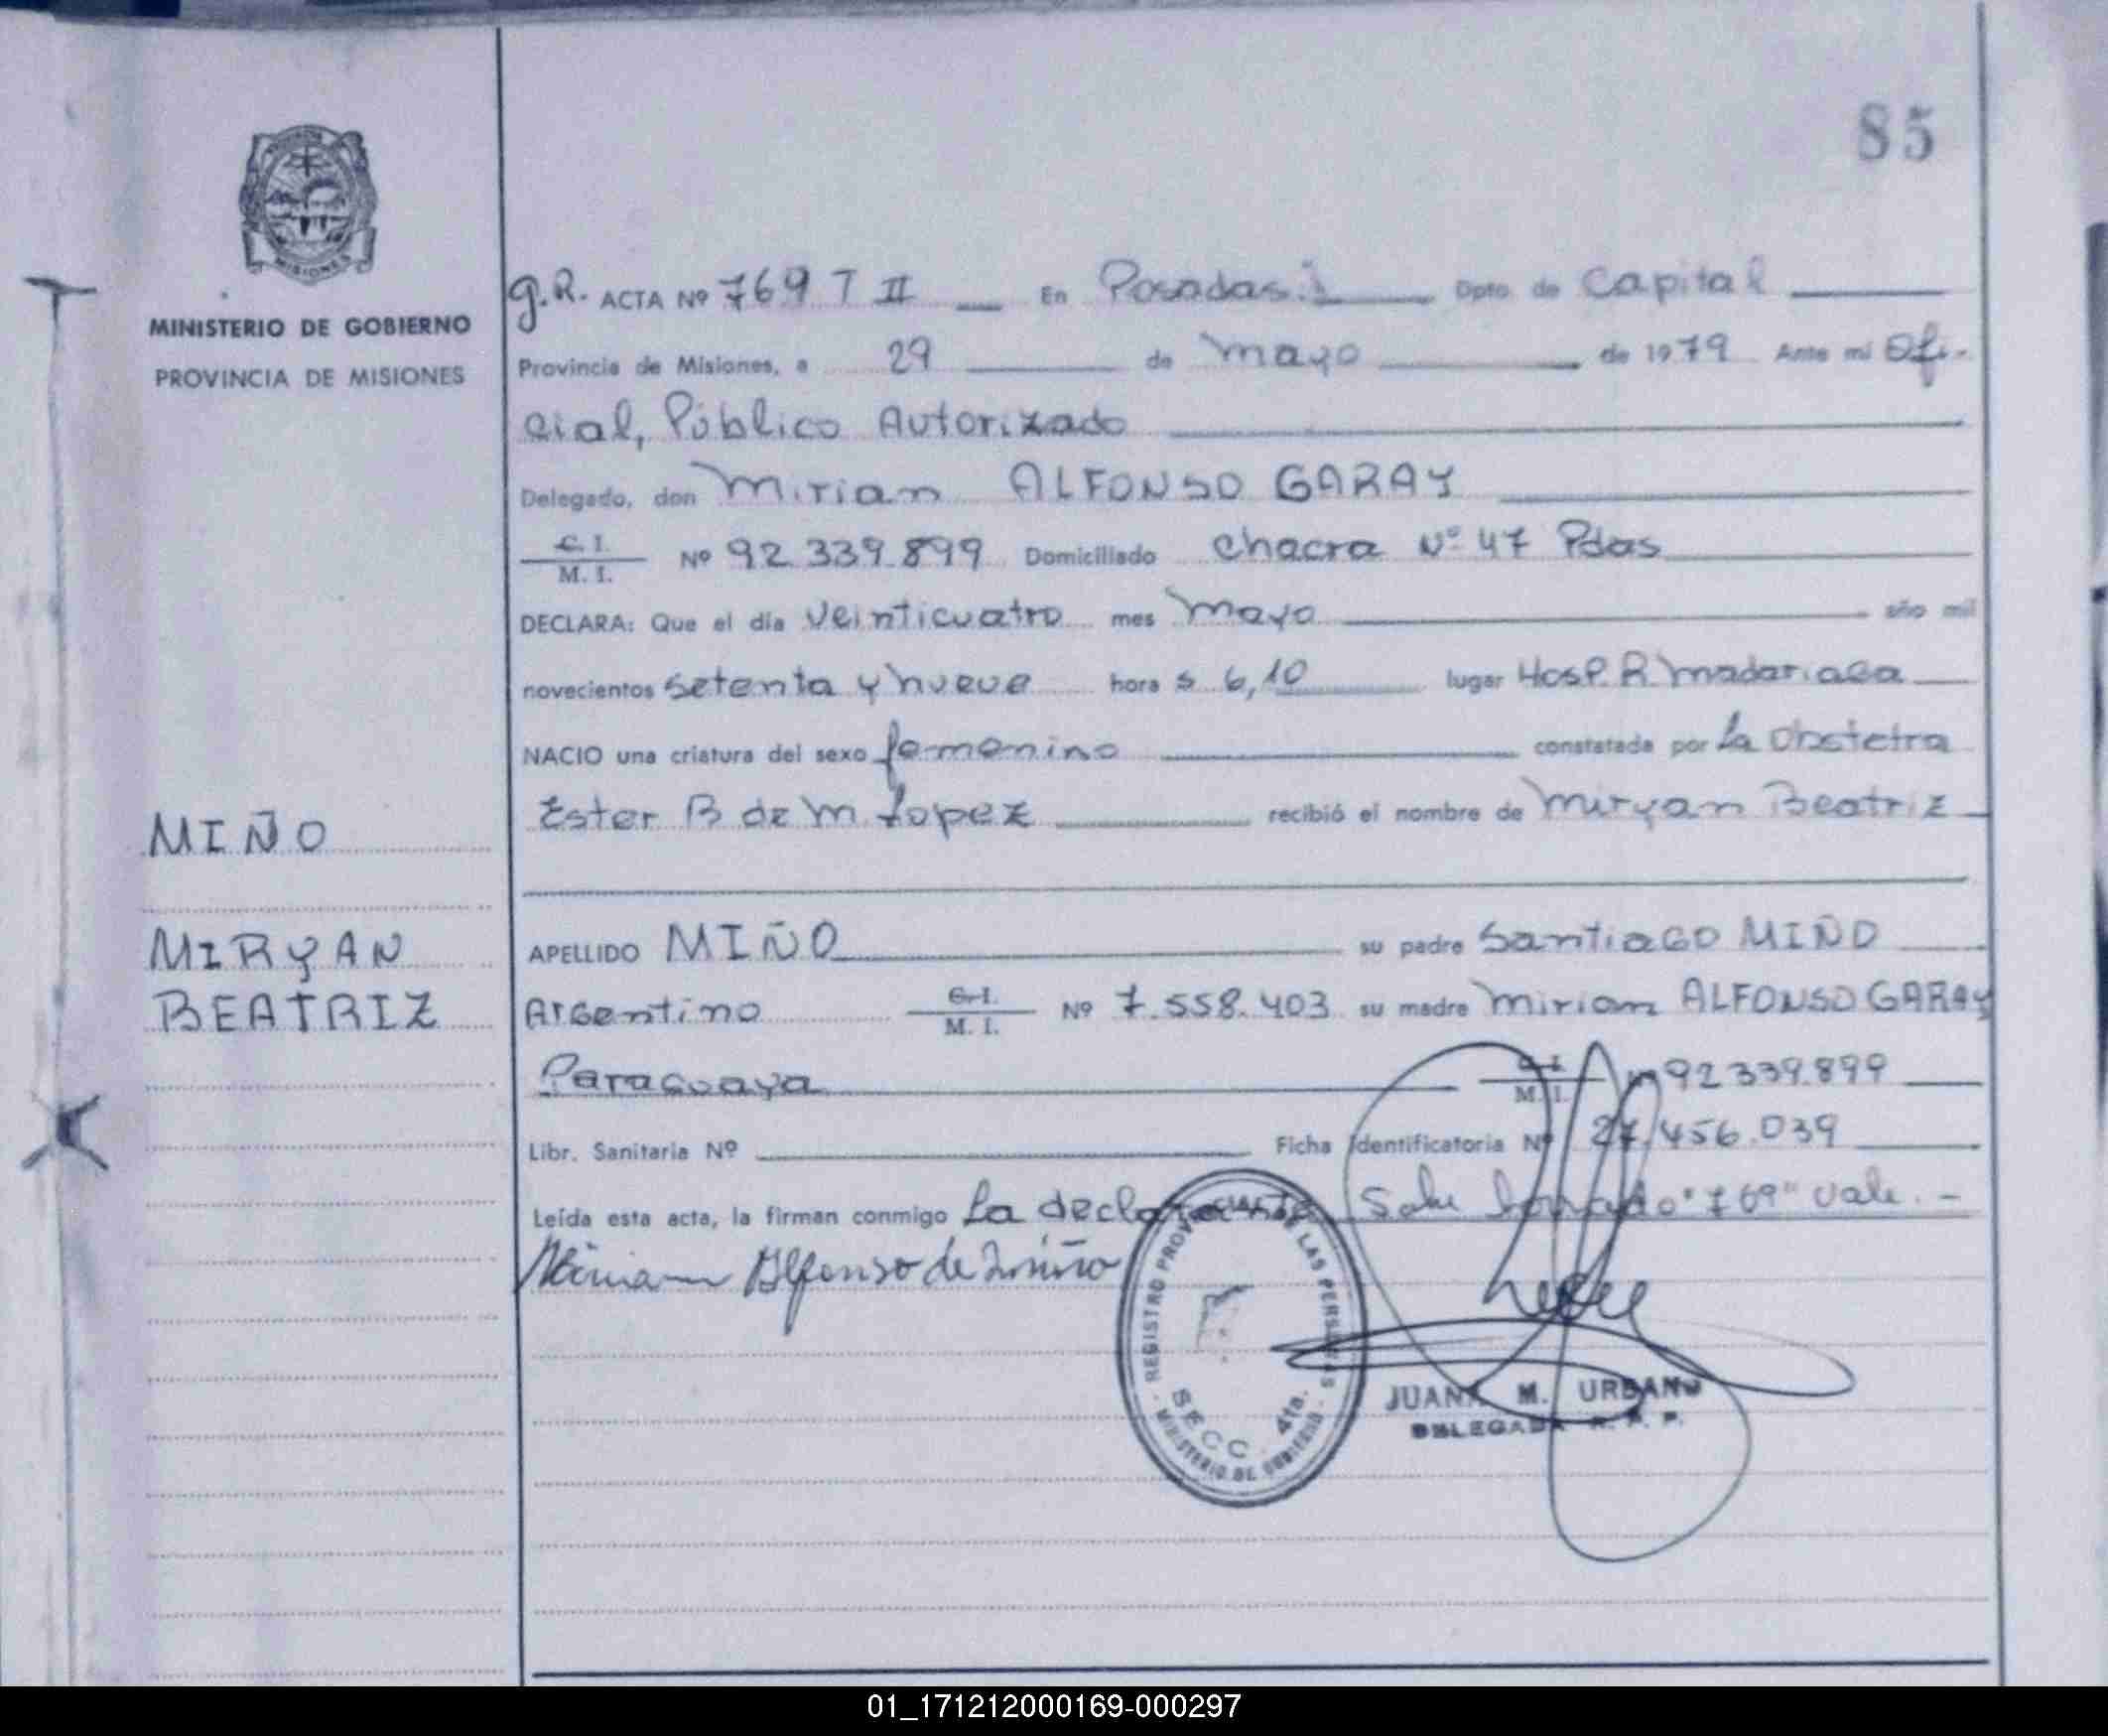 85
MISIONES
MINISTERIO DE GOBIERNO
PROVINCIA DE MISIONES
MIÑO
MIRYAN
BEATRIZ
g.R. ACTA Nº 769 T II En Posadas Dpto. de Capital
Provincia de Misiones, a 29 de mayo de 1979 Ante mi Ofi-
cial, Público Autorizado
Delegado, don Mirian ALFONSO GARAY
C. I.
M. I. Nº 92.339.899 Domiciliado Chacra Nº 47 Pdas
DECLARA: Que el día veinticuatro mes mayo año mil
novecientos setenta y nueve hora s 6,10 lugar Hosp. R. Madariaga
NACIO una criatura del sexo femenino constatada por La Obstetra
Ester B de M. Lopez recibió el nombre de Miryan Beatriz
APELLIDO MIÑO su padre Santiago MIÑO
Argentino C. I.
M. I. Nº 7.558.403 su madre Mirian ALFONSO GARAY
Paraguaya C. I.
M. I. 92339.899
Libr. Sanitaria Nº Ficha Identificatoria Nº 27.456.039
Leída esta acta, la firman conmigo La declarante Sobre borrado "769" Vale. -
Miriam Alfonso de Miño
REGISTRO PROVINCIAL DE LAS PERSONAS
SECC. 4ta.
MINISTERIO DE GOBIERNO
JUANA M. URBANO
DELEGADA R. P. P.
01_171212000169-000297